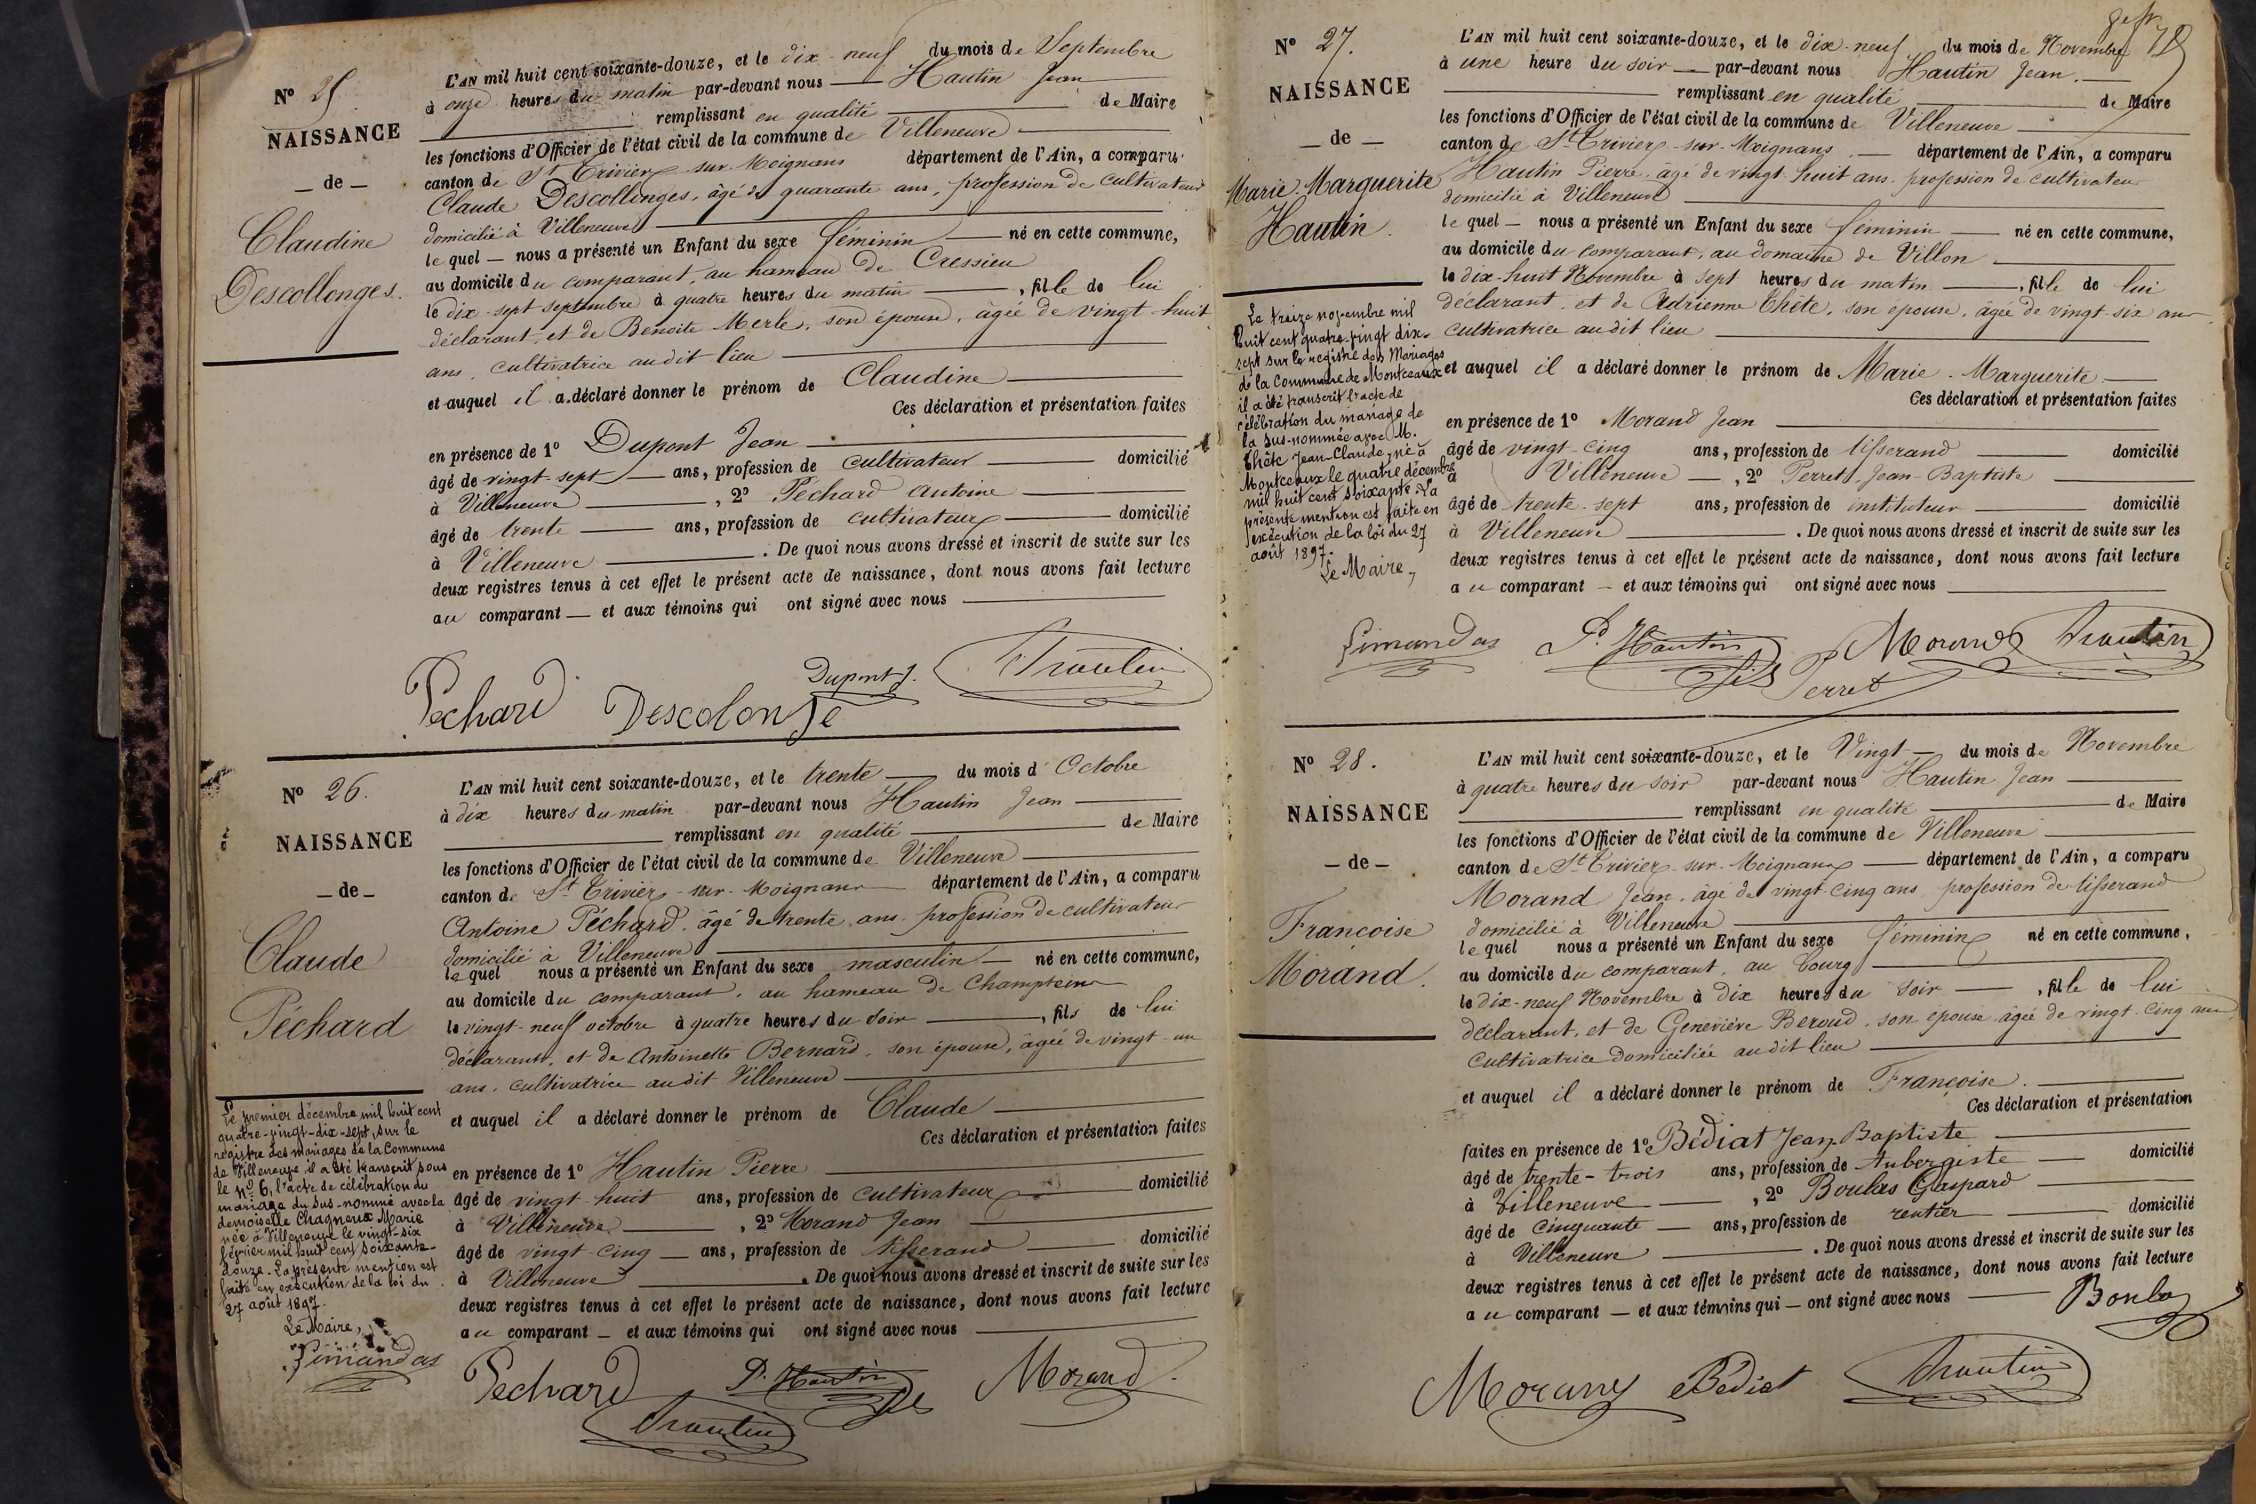 Nº 25.
NAISSANCE
— de —
Claudine
Descollonges.
L'AN mil huit cent soixante-douze, et le dix-neuf du mois de Septembre
à onze heures du matin par-devant nous — Hautin Jean
remplissant en qualité — de Maire
les fonctions d'Officier de l'état civil de la commune de Villeneuve
canton de St Trivier-sur-Moignans département de l'Ain, a comparu
Claude Descollonges, âgé de quarante ans, profession de cultivateur
domicilié à Villeneuve
le quel — nous a présenté un Enfant du sexe féminin — né en cette commune,
au domicile du comparant, au hameau de Cressieu
le dix-sept septembre à quatre heures du matin —, fille de lui
déclarant, et de Benoite Merle, son épouse, âgée de vingt-huit
ans, cultivatrice audit lieu
et auquel il a déclaré donner le prénom de Claudine
Ces déclaration et présentation faites
en présence de 1º Dupont Jean
âgé de vingt-sept — ans, profession de cultivateur — domicilié
à Villeneuve —, 2º Péchard Antoine
âgé de trente — ans, profession de cultivateur — domicilié
à Villeneuve —. De quoi nous avons dressé et inscrit de suite sur les
deux registres tenus à cet effet le présent acte de naissance, dont nous avons fait lecture
au comparant — et aux témoins qui ont signé avec nous
Dupont J. Hautin
Pechard Descolonge
Nº 26.
NAISSANCE
— de —
Claude
Péchard
Le premier décembre mil huit cent
quatre-vingt-dix-sept, sur le
registre des mariages de la Commune
de Villeneuve il a été transcrit sous
le Nº 6, l'acte de célébration du
mariage du sus-nommé avec la
demoiselle Chagneux Marie
née à Villeneuve le vingt-six
février mil huit cent soixante-
douze. La présente mention est
faite en exécution de la loi du
27 août 1897.
Le Maire,
Limandas
L'AN mil huit cent soixante-douze, et le trente — du mois d'Octobre
à dix heures du matin par-devant nous Hautin Jean
remplissant en qualité — de Maire
les fonctions d'Officier de l'état civil de la commune de Villeneuve
canton de St Trivier-sur-Moignans département de l'Ain, a comparu
Antoine Péchard, âgé de trente ans, profession de cultivateur
domicilié à Villeneuve
le quel nous a présenté un Enfant du sexe masculin — né en cette commune,
au domicile du comparant, au hameau de
le vingt-neuf octobre à quatre heures du soir —, fils de lui
déclarant, et de Antoinette Bernard, son épouse, âgée de vingt-un
ans, cultivatrice audit Villeneuve
et auquel il a déclaré donner le prénom de Claude
Ces déclaration et présentation faites
en présence de 1º Hautin Pierre
âgé de vingt-huit ans, profession de cultivateur — domicilié
à Villeneuve —, 2º Morand Jean
âgé de vingt-cinq — ans, profession de tisserand — domicilié
à Villeneuve —. De quoi nous avons dressé et inscrit de suite sur les
deux registres tenus à cet effet le présent acte de naissance, dont nous avons fait lecture
au comparant — et aux témoins qui ont signé avec nous
Pechard P. Hautin fils Morand
Hautin
Nº 27.
NAISSANCE
— de —
Marie-Marguerite
Hautin.
Le treize novembre mil
huit cent quatre-vingt-dix-
sept sur le registre des Mariages
de la Commune de Montceaux
il a été transcrit l'acte de
célébration du mariage de
la sus-nommée avec M.
Thête Jean-Claude, né à
Montceaux le quatre décembre
mil huit cent soixante. La
présente mention est faite en
exécution de la loi du 27
août 1897.
Le Maire,
L'AN mil huit cent soixante-douze, et le dix-neuf du mois de Novembre
à une heure du soir — par-devant nous Hautin Jean
remplissant en qualité — de Maire
les fonctions d'Officier de l'état civil de la commune de Villeneuve
canton de St Trivier-sur-Moignans — département de l'Ain, a comparu
Hautin Pierre, âgé de vingt-huit ans, profession de cultivateur
domicilié à Villeneuve
le quel — nous a présenté un Enfant du sexe féminin — né en cette commune,
au domicile du comparant, au domaine de Villon
le dix-huit Novembre à sept heures du matin —, fille de lui
déclarant, et de Adrienne Thête, son épouse, âgée de vingt-six ans
cultivatrice audit lieu
et auquel il a déclaré donner le prénom de Marie-Marguerite
Ces déclaration et présentation faites
en présence de 1º Morand Jean
âgé de vingt-cinq ans, profession de tisserand — domicilié
à Villeneuve —, 2º Perret Jean-Baptiste
âgé de trente-sept ans, profession de instituteur — domicilié
à Villeneuve —. De quoi nous avons dressé et inscrit de suite sur les
deux registres tenus à cet effet le présent acte de naissance, dont nous avons fait lecture
au comparant — et aux témoins qui ont signé avec nous
Limandas P. Hautin fils Morand Hautin
Perret
Nº 28.
NAISSANCE
— de —
Françoise
Morand.
L'AN mil huit cent soixante-douze, et le Vingt — du mois de Novembre
à quatre heures du soir par-devant nous Hautin Jean
remplissant en qualité — de Maire
les fonctions d'Officier de l'état civil de la commune de Villeneuve
canton de St Trivier-sur-Moignans — département de l'Ain, a comparu
Morand Jean, âgé de vingt-cinq ans, profession de tisserand
domicilié à Villeneuve
le quel nous a présenté un Enfant du sexe féminin né en cette commune,
au domicile du comparant, au bourg
le dix-neuf Novembre à dix heures du soir —, fille de lui
déclarant, et de Geneviève Beroud, son épouse, âgée de vingt-cinq ans
cultivatrice domiciliée audit lieu
et auquel il a déclaré donner le prénom de Françoise.
Ces déclaration et présentation
faites en présence de 1º Bédiat Jean Baptiste
âgé de trente-trois ans, profession de Aubergiste — domicilié
à Villeneuve —, 2º Boulas Gaspard
âgé de cinquante — ans, profession de rentier — domicilié
à Villeneuve —. De quoi nous avons dressé et inscrit de suite sur les
deux registres tenus à cet effet le présent acte de naissance, dont nous avons fait lecture
au comparant — et aux témoins qui — ont signé avec nous — Boulas
Morand Bediat Hautin